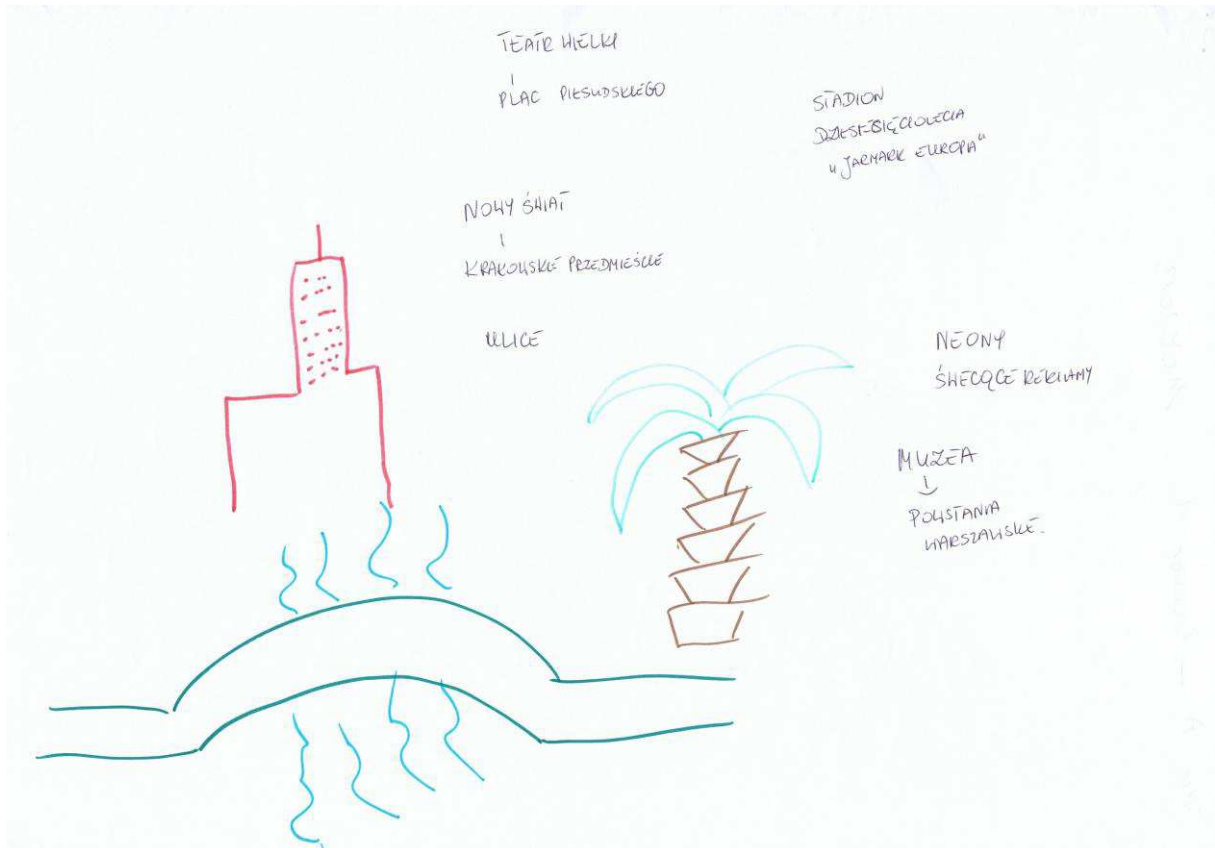 TEATR WIELKI
I
PLAC PIŁSUDSKIEGO
STADION
DZIESIĘCIOLECIA
"JARMARK EUROPA"
NOWY ŚWIAT
I
KRAKOWSKIE PRZEDMIEŚCIE
ULICE
NEONY
ŚWIECĄCE REKLAMY
MUZEA
POWSTANIA
WARSZAWSKIE.